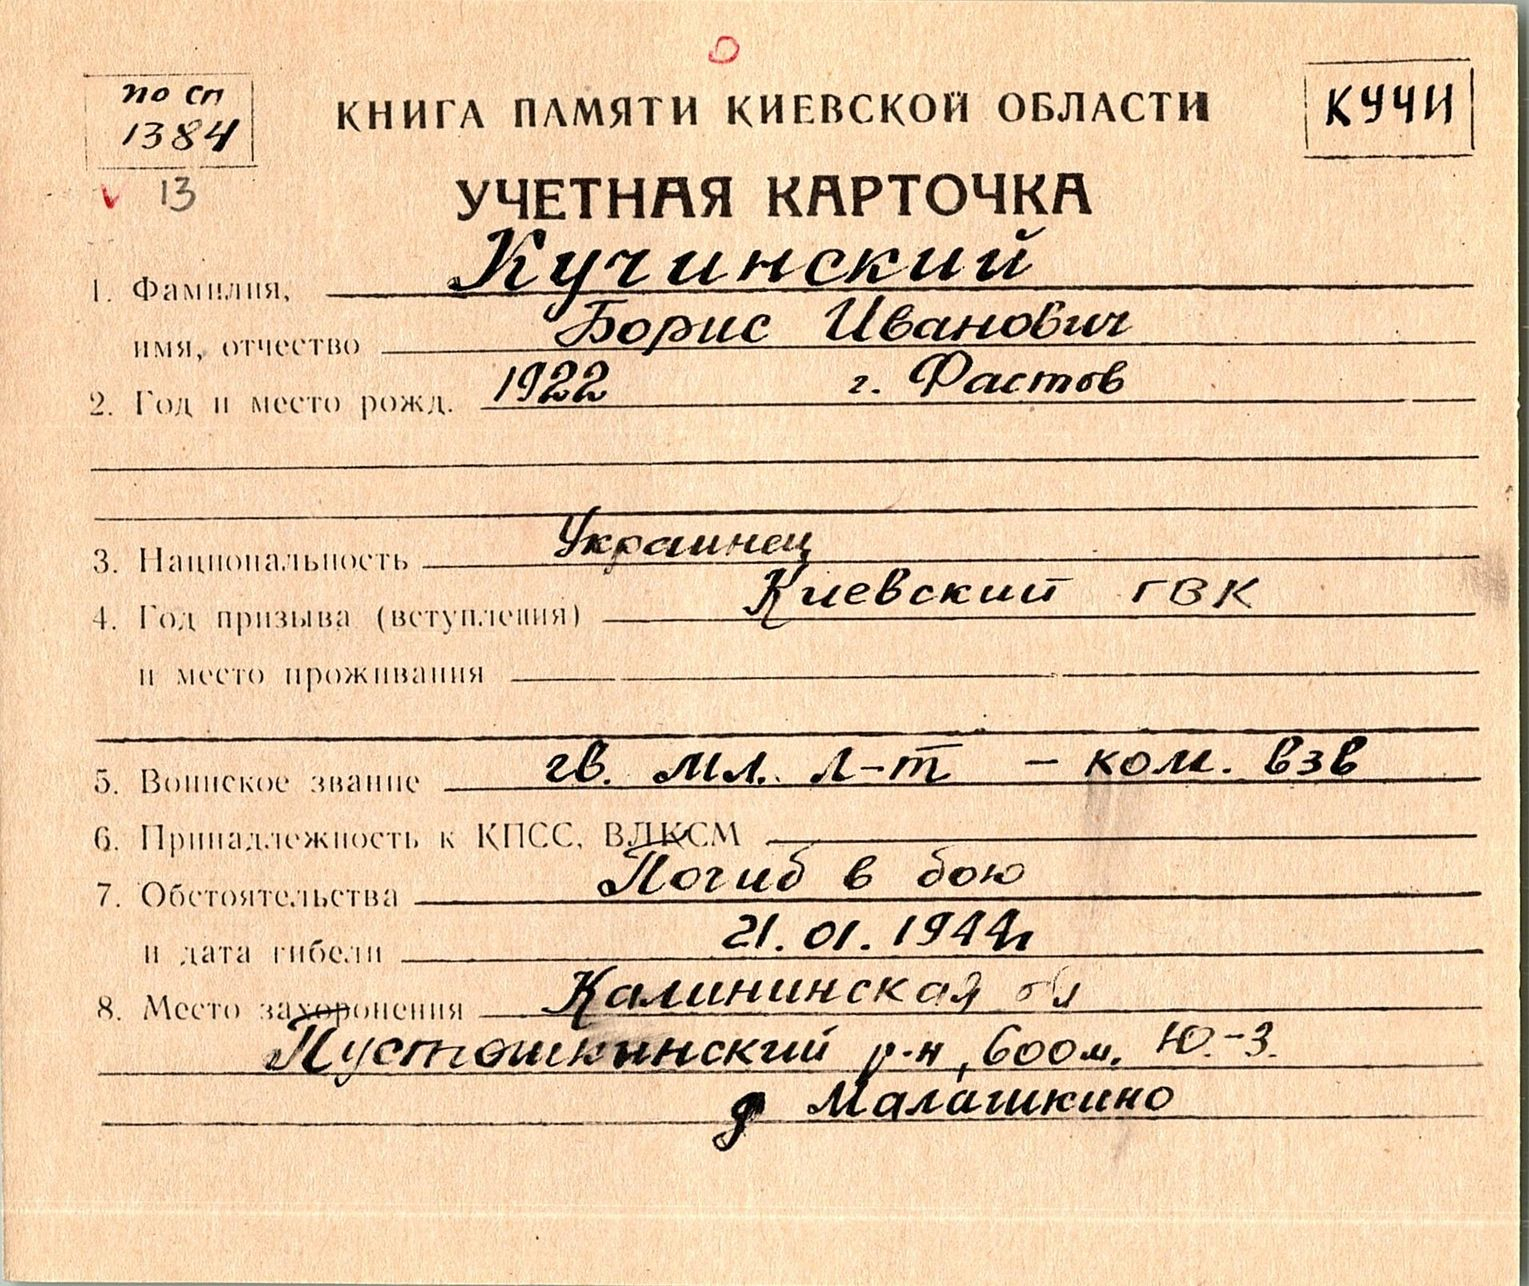 по сп
1384
13
КНИГА ПАМЯТИ КИЕВСКОЙ ОБЛАСТИ
КУЧИ
УЧЕТНАЯ КАРТОЧКА
1. Фамилия, Кучинский
имя, отчество Борис Иванович
2. Год и место рожд. 1922 г. Фастов
3. Национальность Украинец
4. Год призыва (вступления) Киевский ГВК
и место проживания
5. Воинское звание гв. мл. л-т – ком. взв
6. Принадлежность к КПСС, ВЛКСМ
7. Обстоятельства Погиб в бою
и дата гибели 21.01.1944г
8. Место захоронения Калининская обл
Пустошкинский р-н, 600м. Ю.-З.
д Малашкино